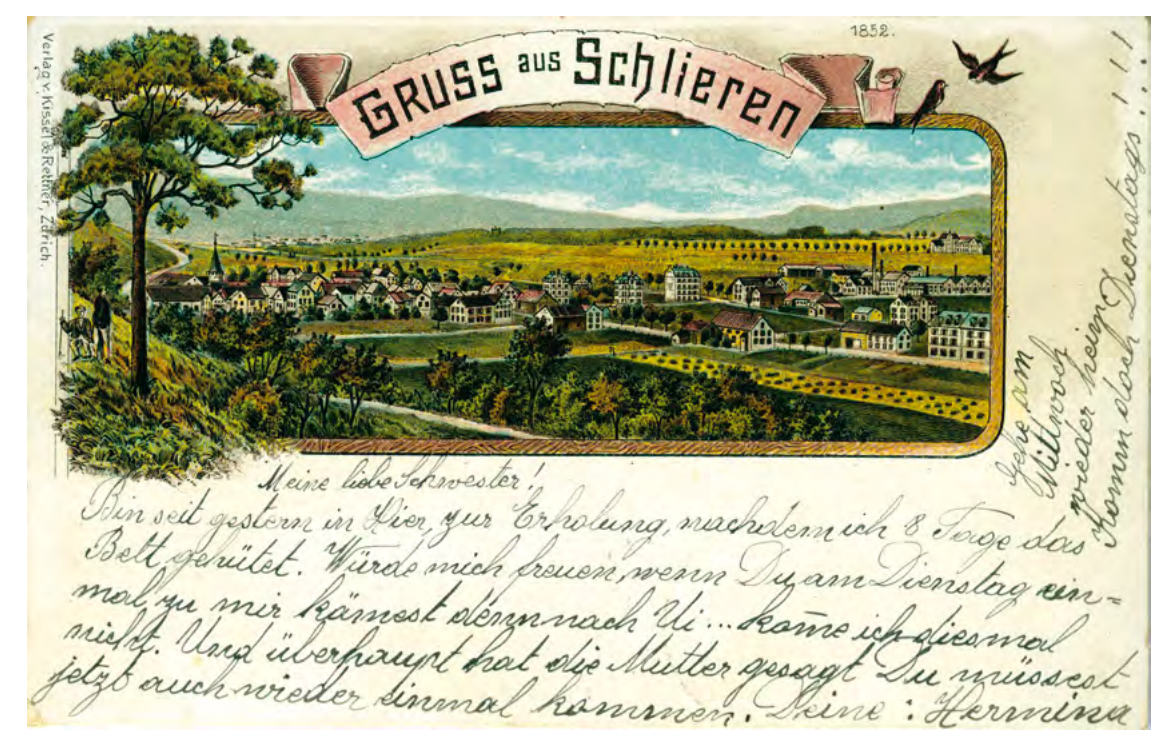 Verlag v. Kissel & Rettner, Zürich.
1852.
GRUSS aus Schlieren
Meine liebe Schwester!
Bin seit gestern in Hier, zur Erholung, nachdem ich 8 Tage das
Bett gehütet. Würde mich freuen, wenn Du am Dienstag ein=
mal zu mir kämest denn nach Ui... kom̄e ich diesmal
nicht. Und überhaupt hat die Mutter gesagt Du müssest
jetzt auch wieder einmal kommen. Deine: Hermina
Gehe am
Mittwoch
wieder heim
Komm doch Dienstags!!!!